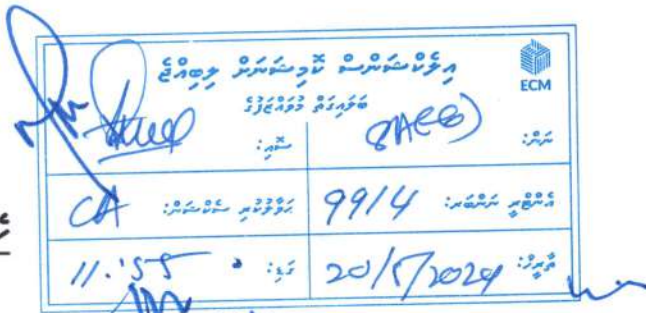 އިލެކްޝަންސް ކޮމިޝަނަށް ލިބިއްޖެ
ECM
ބަލައިގަތް މުވައްޒަފުގެ
ނަން: ސޮއި:
އެންޓްރީ ނަންބަރ: 99/4 ޙަވާލުކުރި ސެކްޝަން: CA
ތާރީޚު: 20/5/2024 ގަޑި: 11:55